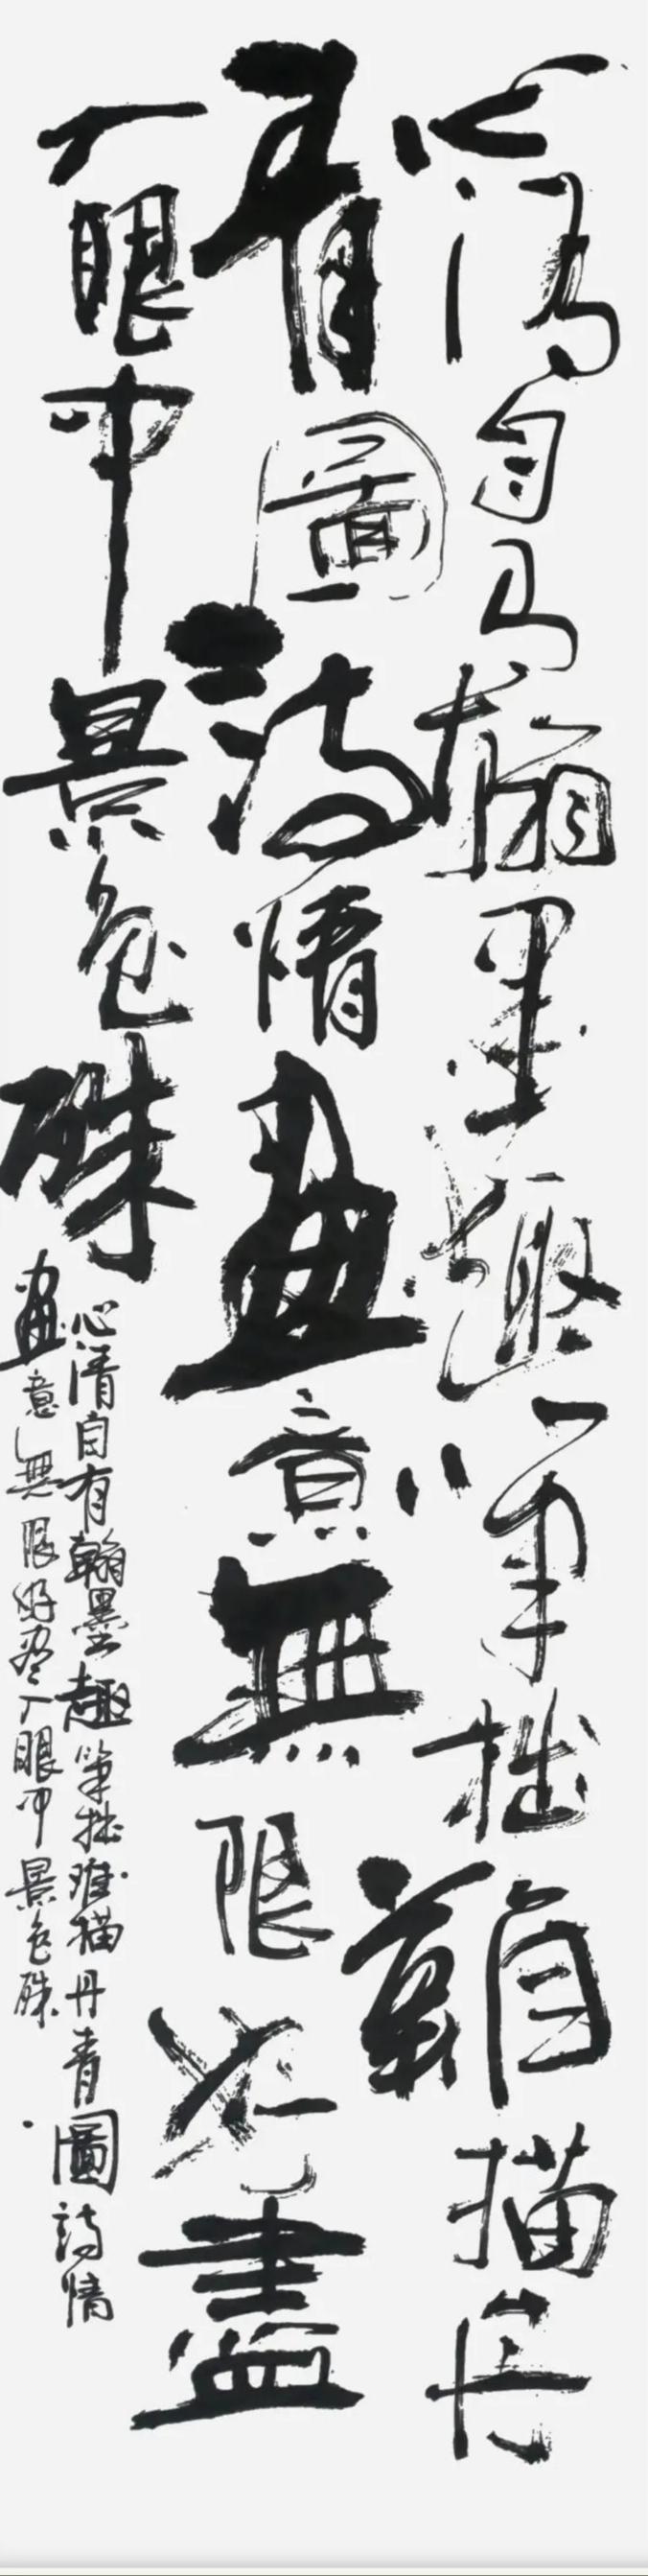 心清自有翰墨趣筆拙難描丹
青圖詩情畫意無限好盡
入眼中景色殊
心清自有翰墨趣筆拙难描丹青圖詩情
畫意無限好尽入眼中景色殊